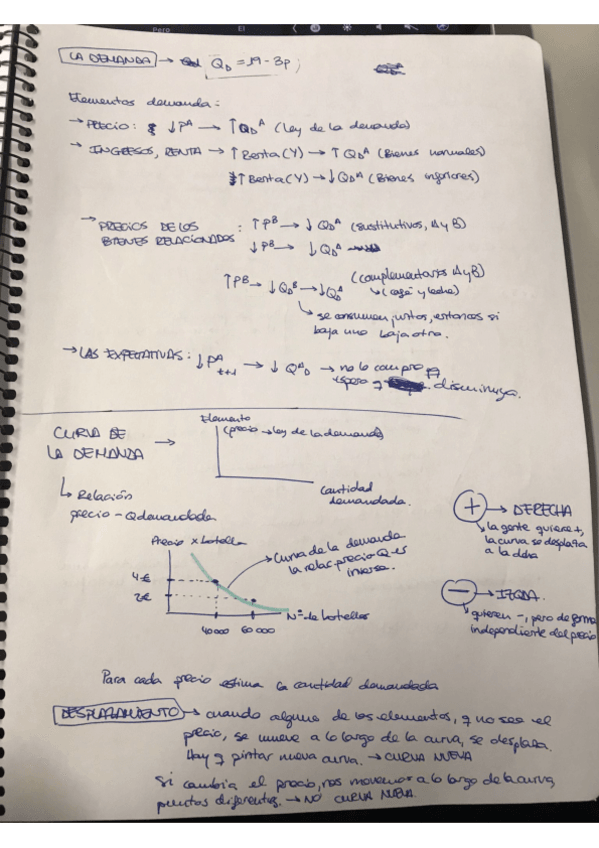 LA DEMANDA → Q_D = 19 - 3p;
Elementos demanda:
→ PRECIO: ↓P^A → ↑Q_D^A (Ley de la demanda)
→ INGRESOS, RENTA → ↑Renta (Y) → ↑Q_D^A (Bienes normales)
↑Renta (Y) → ↓Q_D^A (Bienes inferiores)
→ PRECIOS DE LOS BIENES RELACIONADOS : ↑P^B → ↓Q_D^A (sustitutivos, A y B)
↓P^B → ↓Q_D^A
↑P^B → ↓Q_D^B → ↓Q_D^A (complementarios A y B)
↳ (café y leche)
↳ se consumen juntos, entonces si
baja uno baja otro.
→ LAS EXPECTATIVAS: ↓P^A_{t+1} → ↓Q_D^A → no lo compro
espero q P disminuya.
CURVA DE
LA DEMANDA →
Elemento
(precio → ley de la demanda)
Cantidad
demandada.
↳ Relación
precio - Q demandada
Precio x botella
4€
2€
40 000 60 000
Nº de botellas
Curva de la demanda
la relac precio Q es
inversa.
+ → DERECHA
↳ la gente quiere +,
la curva se desplaza
a la dcha
- → IZQDA.
↳ quieren -, pero de forma
independiente del precio
Para cada precio estima la cantidad demandada
DESPLAZAMIENTO → cuando alguno de los elementos, q no sea el
precio, se mueve a lo largo de la curva, se desplaza.
Hay q pintar nueva curva. → CURVA NUEVA
Si cambia el precio, nos movemos a lo largo de la curva,
puntos diferentes. → NO CURVA NUEVA.